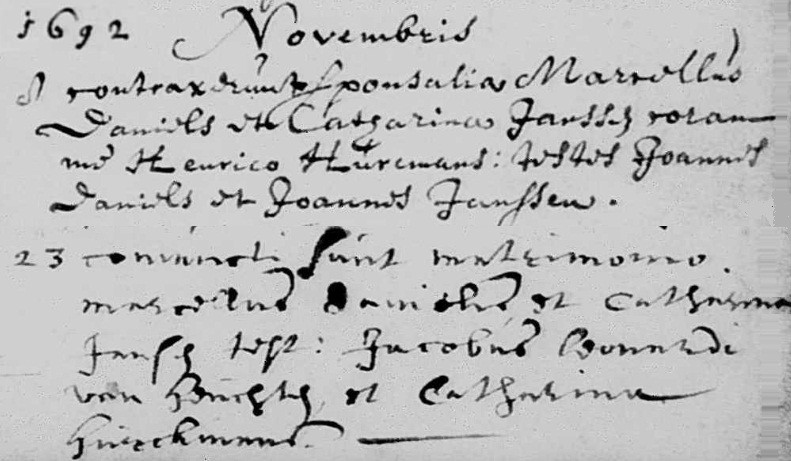 1692 Novembris
8 contraxerunt sponsalia Marcellus
Daniels et Catharina Janssen coram
me Henrico Hurcmans: testes Joannes
Daniels et Joannes Janssen.
23 coniuncti sunt matrimonio
marcellus Daniels et Catharina
Jansen test: Jacobus
van et Catharina